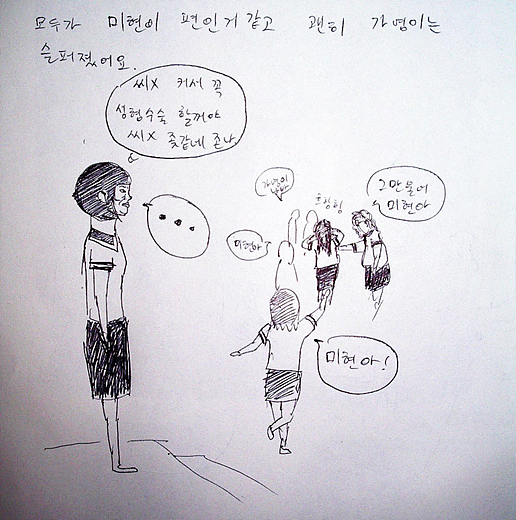 모두가 미현이 편인거 같고 괜히 가영이는
슬퍼졌어요.
씨X 커서 꼭
성형수술 할꺼야
씨X 좆같네 존나
...
가영이
나빠
미현아
흐헝헝
그만 울어
미현아
미현아!